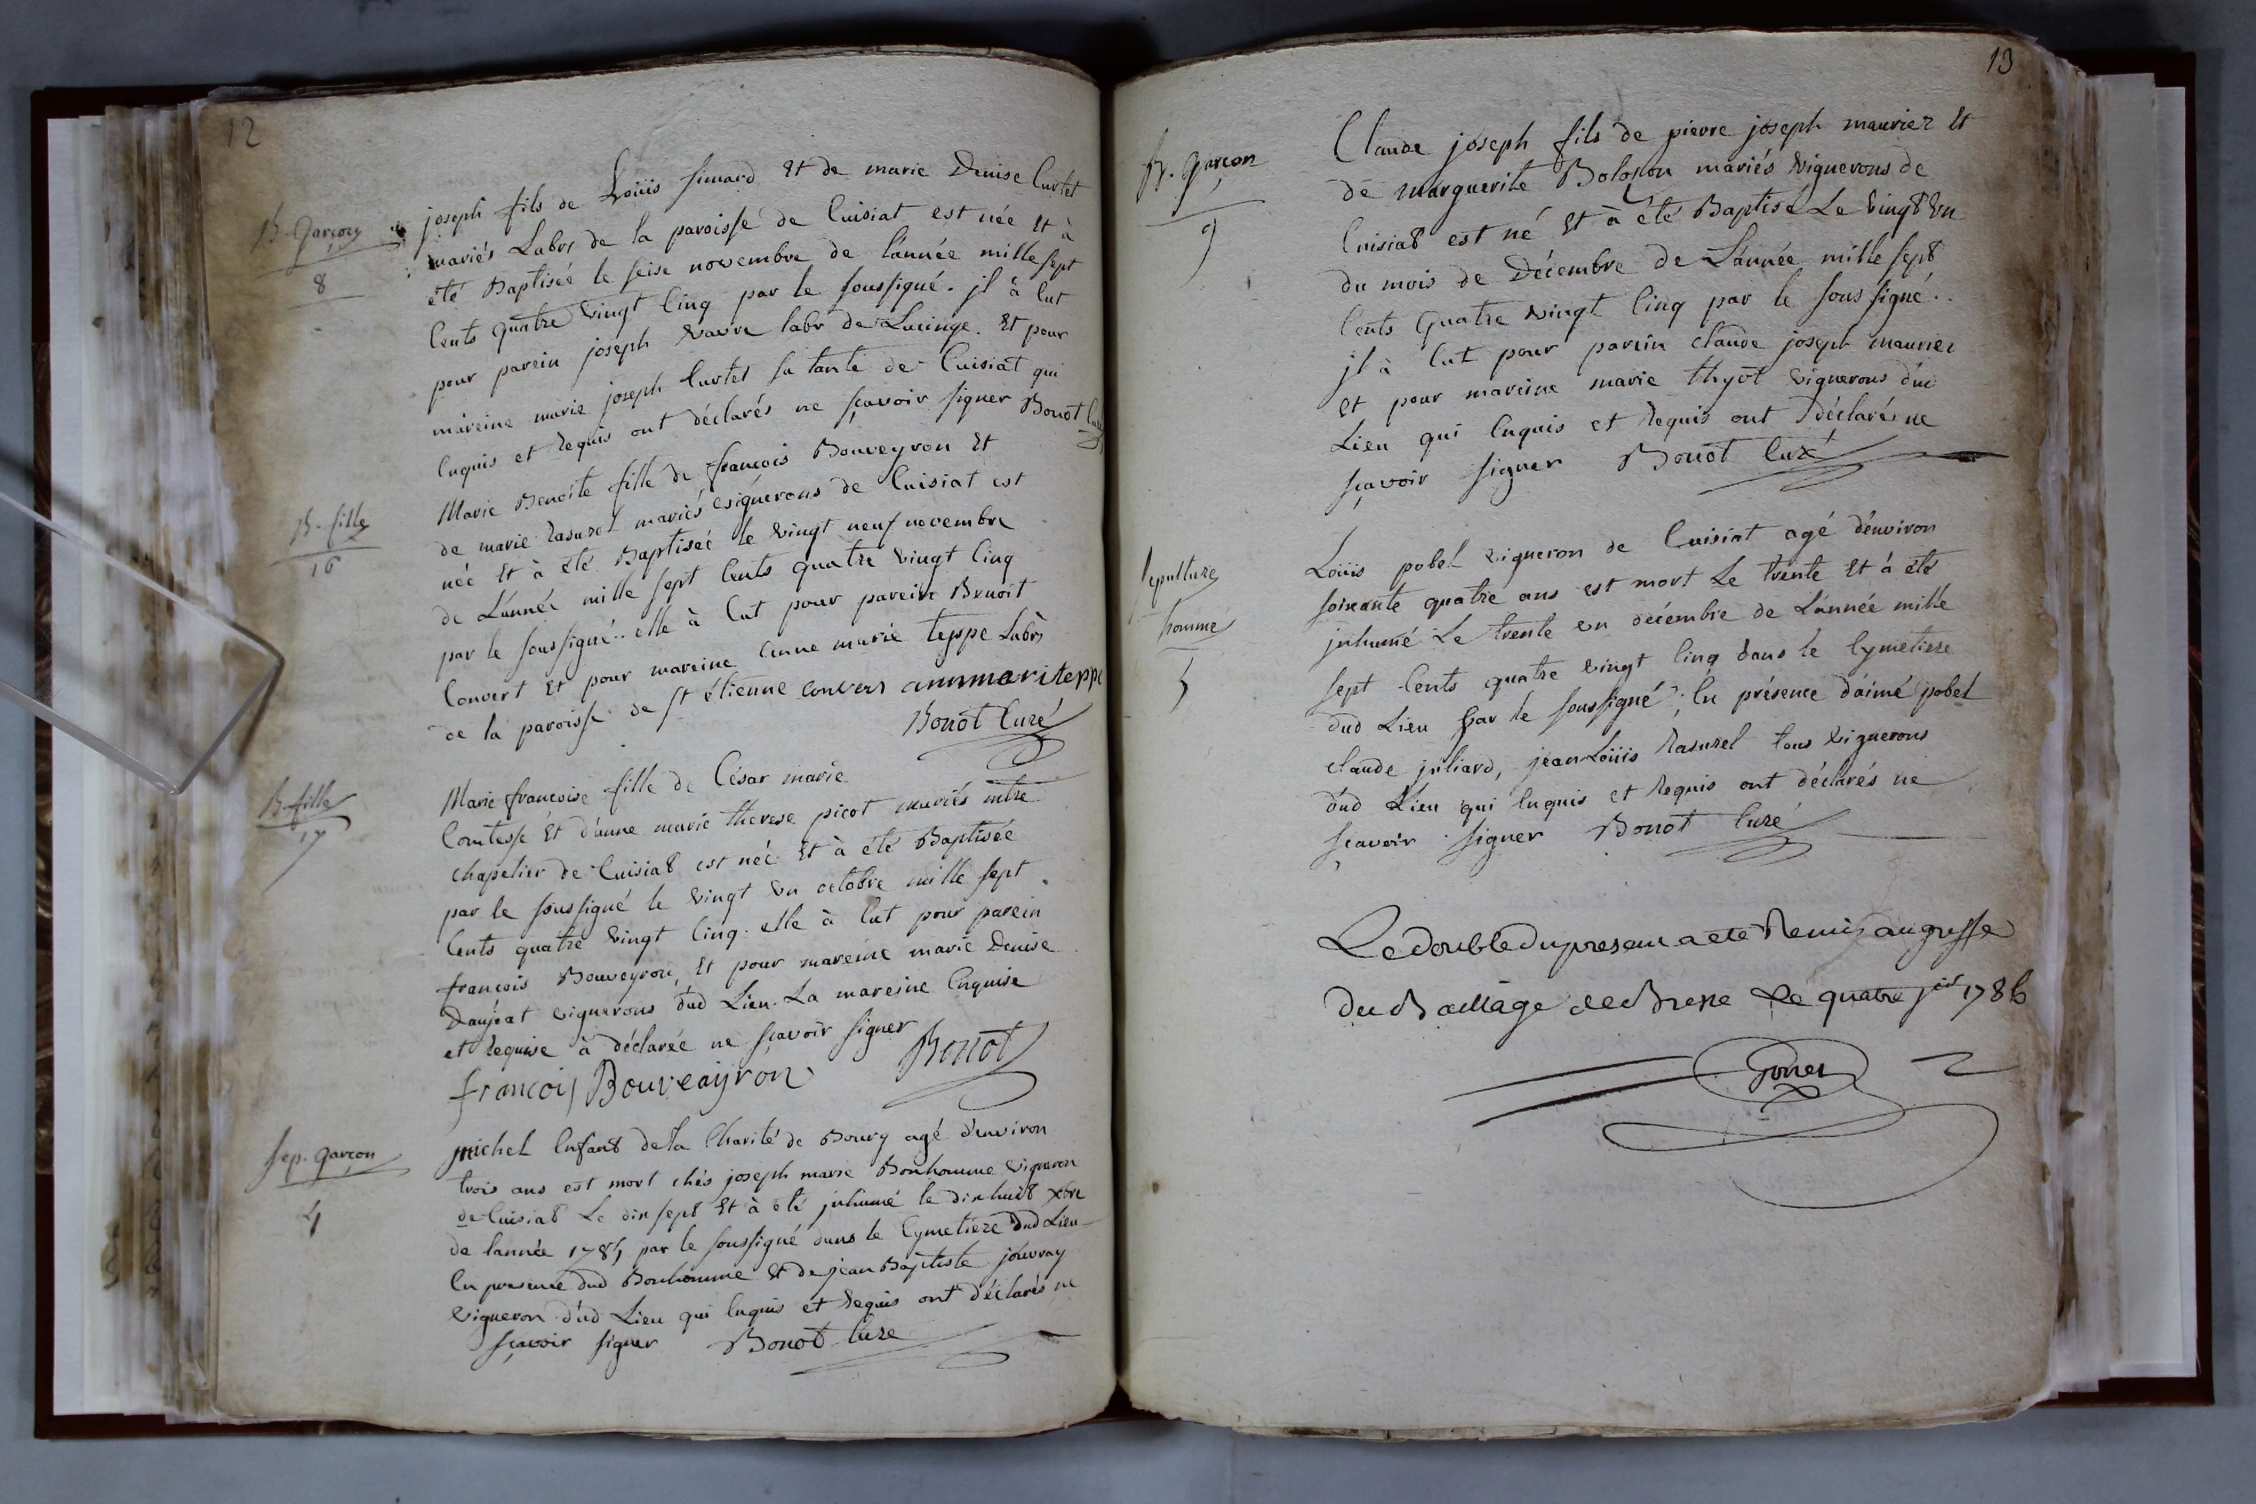 12
B. Garçon
8
joseph fils de Loüis fimard Et de marie Denise Curtet
mariés Labrs de la paroisse de Cuisiat est née Et à
été Baptisée le seise novembre de l'année mille sept
Cents quatre vingt Cinq par le soussigné. jl à Eut
pour parein joseph vavre labr de Lucinge. Et pour
mareine marie joseph Curtet sa tante de Cuisiat qui
Enquis et Requis ont déclarés ne sçavoir signer Bonot Curé
B. fille
16
Marie Benoite fille de françois Bouveyron Et
de marie Rasurel mariés vignerons de Cuisiat est
née Et à été Baptiseé le vingt neuf novembre
de L'année mille sept Cents quatre vingt Cinq
par le soussigné.. elle à Eut pour parein Benoit
Convert Et pour mareine anne marie teppe Labrs
de la paroisse de st étienne convers annmariteppe
Bonot Curé
B. fille
17
Marie françoise fille de César marie
Comtesse Et d'anne marie therese picot mariés mtre
chapelier de Cuisiat est neé Et à été Baptisée
par le soussigné le vingt un octobre mille sept
Cents quatre vingt Cinq. elle à Eut pour parein
françois Bouveyron, Et pour mareine marie Denise
Daujat vignerons dud Lieu. La mareine Enquise
et Requise à déclareé ne sçavoir signer
françois Bouveayron Bonot
sep. garçon
4
michel Enfant de la Charité de Bourg agé d'environ
trois ans est mort chés joseph marie Bonhomme vigneron
de Cuisiat Le dix sept Et à été jnhumé le dix huit xbre
de l'année 1785 par le soussigné dans le Cymetiere dud Lieu
En presence dud Bonhomme Et de jean Baptiste jouvray
vigneron dud Lieu qui Enquis et Requis ont déclarés ne
sçavoir signer Bonot Curé
13
B. garçon
9
Claude joseph fils de pierre joseph maurier Et
de marguerite Boloson mariés vignerons de
Cuisiat est né Et à été Baptisé Le vingt un
du mois de Décembre de L'année mille sept
Cents Quatre vingt Cinq par le sous signé..
jl à Eut pour parein claude joseph maurier
Et pour mareine marie thyot vignerons dud
Lieu qui Enquis et Requis ont déclarés ne
sçavoir signer Bonot Curé
sepulture
homme
5
Loüis pobel vigneron de Cuisiat agé d'environ
soixante quatre ans est mort Le trente Et à été
jnhumé Le trente un décembre de L'année mille
sept Cents quatre vingt Cinq dans le Cymetiere
dud Lieu par le soussigné ; En présence d'aimé pobel
claude juliard, jean Loüis Rasurel tous vignerons
dud Lieu qui Enquis et Requis ont déclarés ne
sçavoir signer Bonot Curé
Le double du present a ete Remis au greffe
du Bailliage de Bresse Le quatre jer 1786